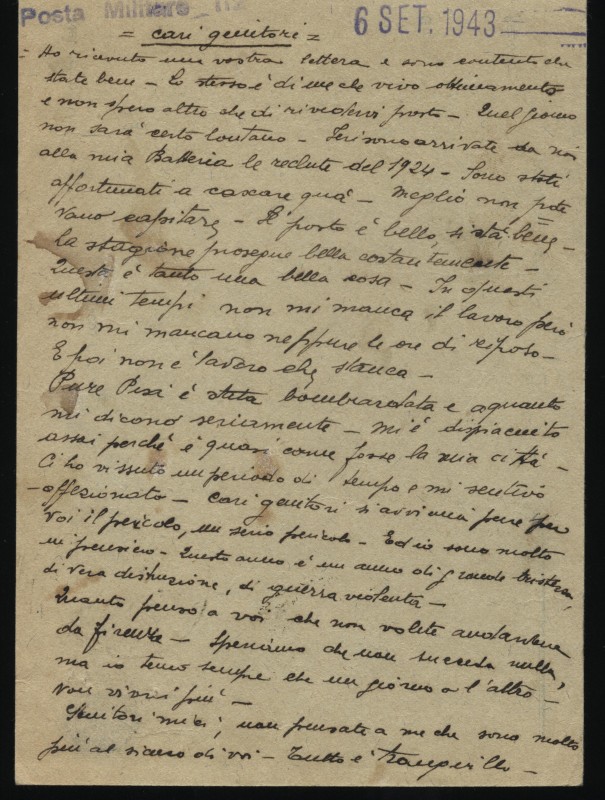 Posta Militare N.
6 SET. 1943
= cari genitori =
= Ho ricevuto una vostra lettera e sono contento che
state bene - Lo stesso è di me che vivo ottimamente
e non spero altro che di rivedervi presto - Quel giorno
non sarà certo lontano - Ieri sono arrivate da noi
alla mia Batteria le reclute del 1924 - Sono stati
affortunati a cascare quà - Meglio non pote=
vano capitare - Il posto è bello, si stà bene -
la stagione prosegue bella costantemente -
Questa è tanto una bella cosa - In questi
ultimi tempi non mi manca il lavoro però
non mi mancano neppure le ore di riposo -
E poi non è lavoro che stanca -
Pure Pisa è stata bombardata e a quanto
mi dicono seriamente - Mi è dispiaciuto
assai perchè è quasi come fosse la mia città -
Ci ho vissuto un periodo di tempo e mi sentivo
affezionato - Cari genitori si avvicina pure per
voi il pericolo, un serio pericolo - Ed io sono molto
in pensiero - Quest'anno è un anno di grande tristezza,
di vera distruzione, di guerra violenta -
Quanto penso a voi che non volete andarvene
da Firenze - Speriamo che non succeda nulla,
ma io temo sempre che un giorno o l'altro -
non vivrei più -
Genitori miei, non pensate a me che sono molto
più al sicuro di voi - Tutto è tranquillo -